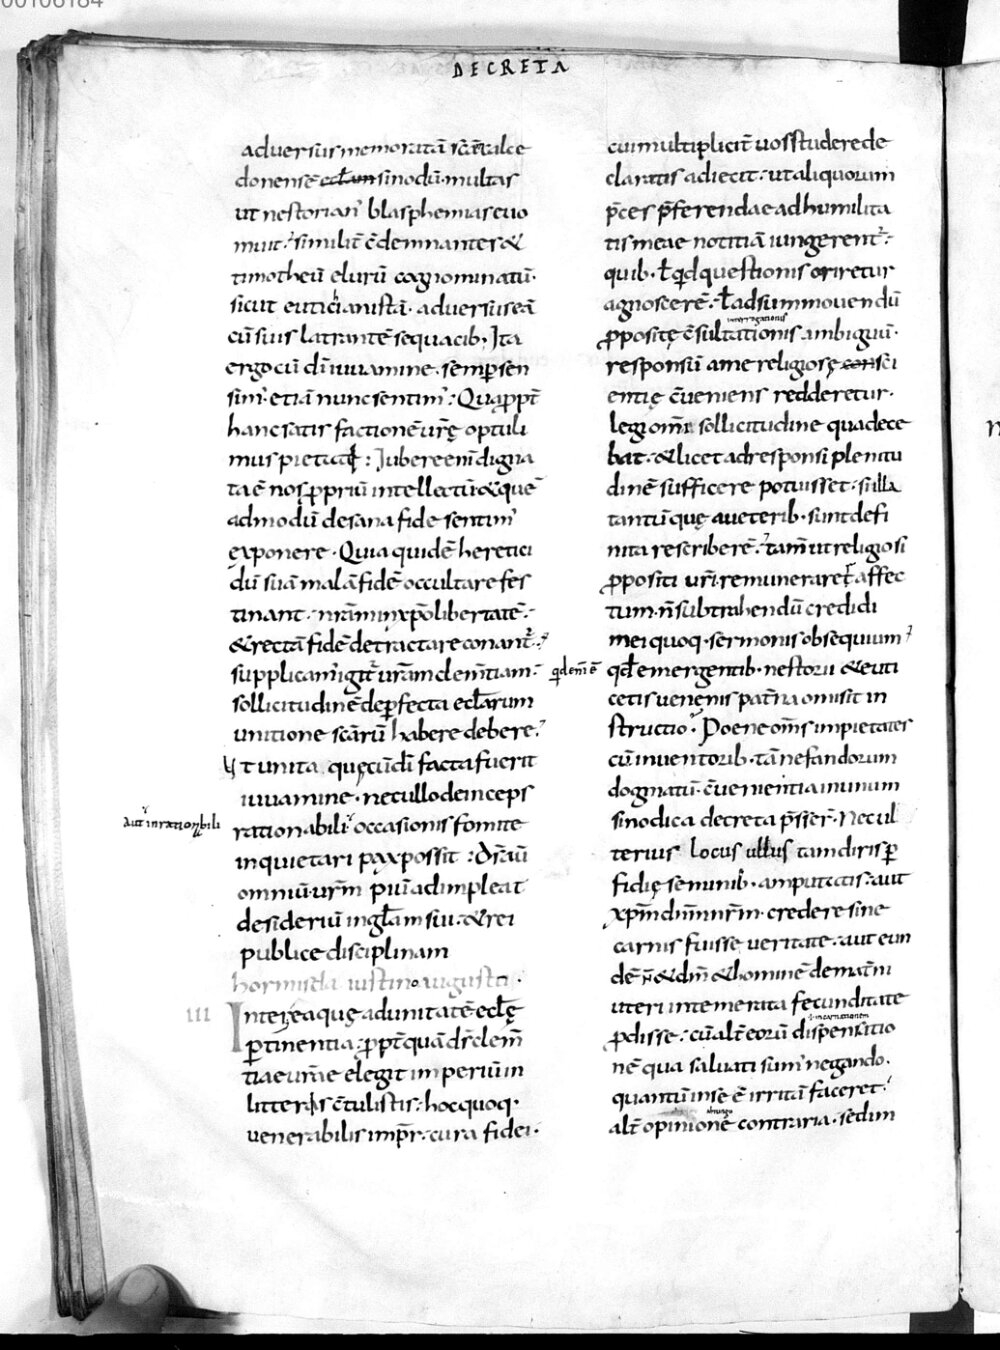 00106184
DECRETA
adversus memoratā sc̄ā calce
donensē eclam sinodū· multas
ut nestorian' blasphemias evo
muit· similit̄ c̄demnantes &
timotheū elurū cognominatū·
sicut euticianistā· adversus eā
cū suis latrantē sequacib· Ita
ergo cū dī iuvamine· semp̄ sen
sim' etiā nunc sentim': Qua ꝓpt̄
hanc satisfactionē vr̄ę optuli
mus pietati: Jubere enī digna
ta ē nos ꝓpriū intellectū & quē
admodū de sana fide sentim'
exponere· Quia quidē heretici
dū suā malā fidē occultare fes
tinant· nr̄am in xp̄o libertatē·
& rectā fidē detractare conant̄·
supplicam' igit̄ vr̄am clem̄tiam·
sollicitudinē de ꝑfecta ecl̄arum
unitione sc̄ārū habere debere·
Ut unita quęcū dī facta fuerit
iuvamine· nec ullo deinceps
aut inrationabili
rationabili occasionis fomite
inquietari pax possit: Ds̄ aū
omniū vr̄m pium adimpleat
desideriū in gl̄am sui· & rei
publice disciplinam
hormisda iustino augusto·
III
Interea quę ad unitatē ecl̄ę
ꝑtinentia· ꝓpt̄ quā ds̄ clem̄
tiae vr̄ae elegit imperiū in
litteris c̄tulistis· hoc quoq·
venerabilis impr̄· cura fidei·
cui multiplicit̄ vos studere de
claratis adiecit· ut aliquorum
p̄ces p̄ferendae ad humilita
tis meae notitiā iungerent̄·
quib· ł qd̄ questionis oriretur
agnoscerē· ł ad summovendū
interrogationis
ꝓpositę c̄sultationis ambiguū·
responsū a me religiosę con sci
entię c̄veniens redderetur·
legi omi sollicitudine qua dece
bat· & licet ad responsi plenitu
dinē sufficere potuisset· illa
tantū quę a veterib· sunt defi
nita rescriberē· tam̄ ut religiosi
ꝓpositi vr̄i remuneraret̄ affec
tum· n̄ subtrahendū credidi
mei quoq· sermonis obsequium
qd̄em ē
qd̄ emergentib· nestorii & euti
cetis venenis patr̄na omisit in
structio· Poene om̄s impietates
cū inventorib· tā nefandorum
dogmatū· c̄venientia in unum
sinodica decreta p̄sser̄· Nec ul
terius locus ullus tam diris ꝑ
fidię seminib· amputatis· aut
xp̄m dn̄m nr̄m· credere sine
carnis fuisse veritate· aut eun
dē n̄ & dm̄ & hominē de mat̄ni
uteri intemerata fecunditate
incarnationem
ꝓdisse· cū alt̄ eorū dispensatio
nē qua salvati sum' negando·
quantū in se ē irritā faceret·
alt̄ opinionē contraria· sed im